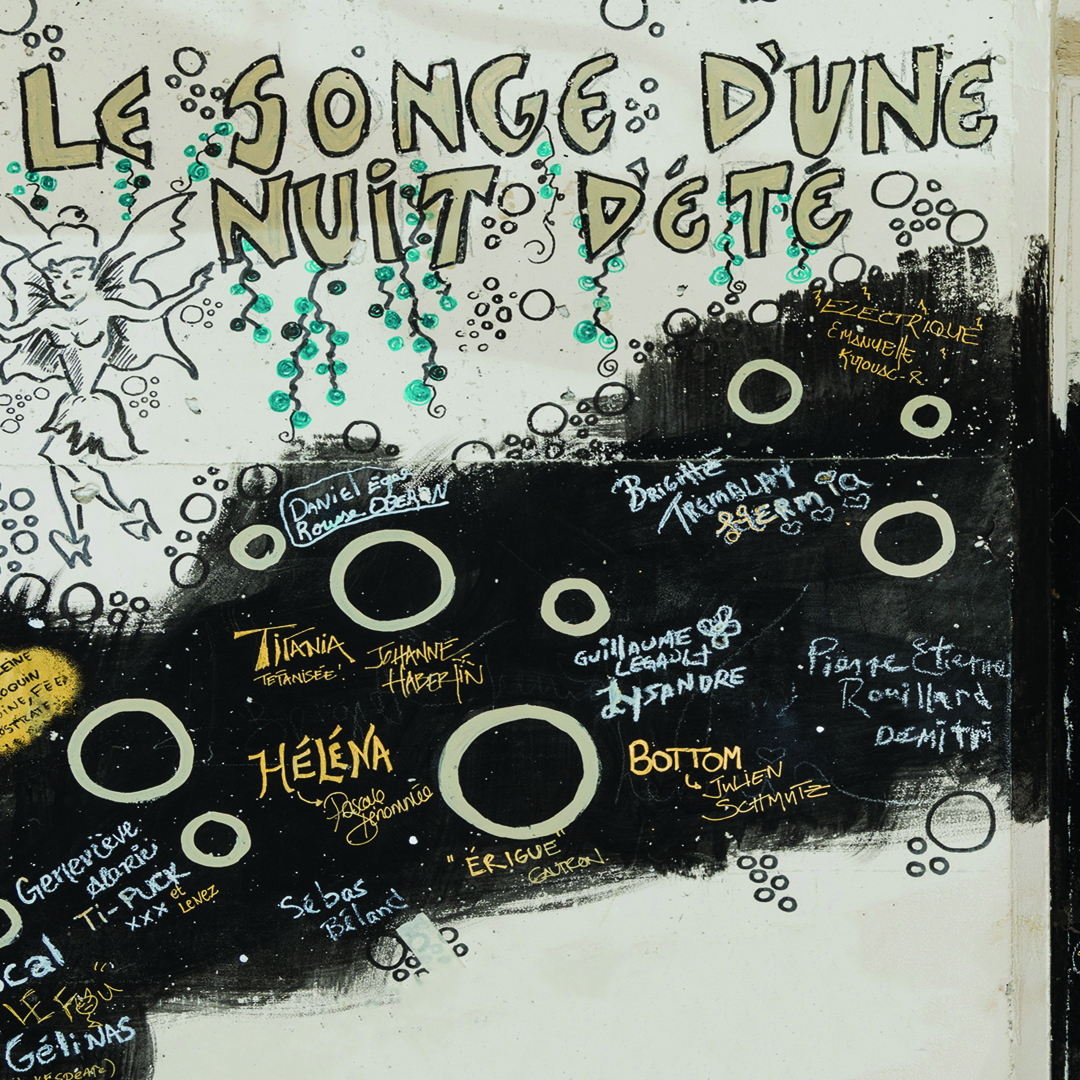 LE SONGE D'UNE
NUIT D'ÉTÉ
ELECTRIQUE
EMANUELLE
KIROUAC-
DANIEL
Rousse OBERON
BRIGITTE
TREMBLAY
HERMIA
TITANIA
TETANISÉE!
JOHANNE
HABERLIN
GUILLAUME
LEGAULT
LYSANDRE
Pierre Etienne
Rouillard
DEMITRI
HÉLÉNA
Pascale
BOTTOM
JULIEN
SCHMUTZ
"ÉRIGUE"
GAUTRON
Geneviève
Ti-PUCK
xxx et
LE NEZ
Sébas
Béland
scal
LE FOU
GéliNAS